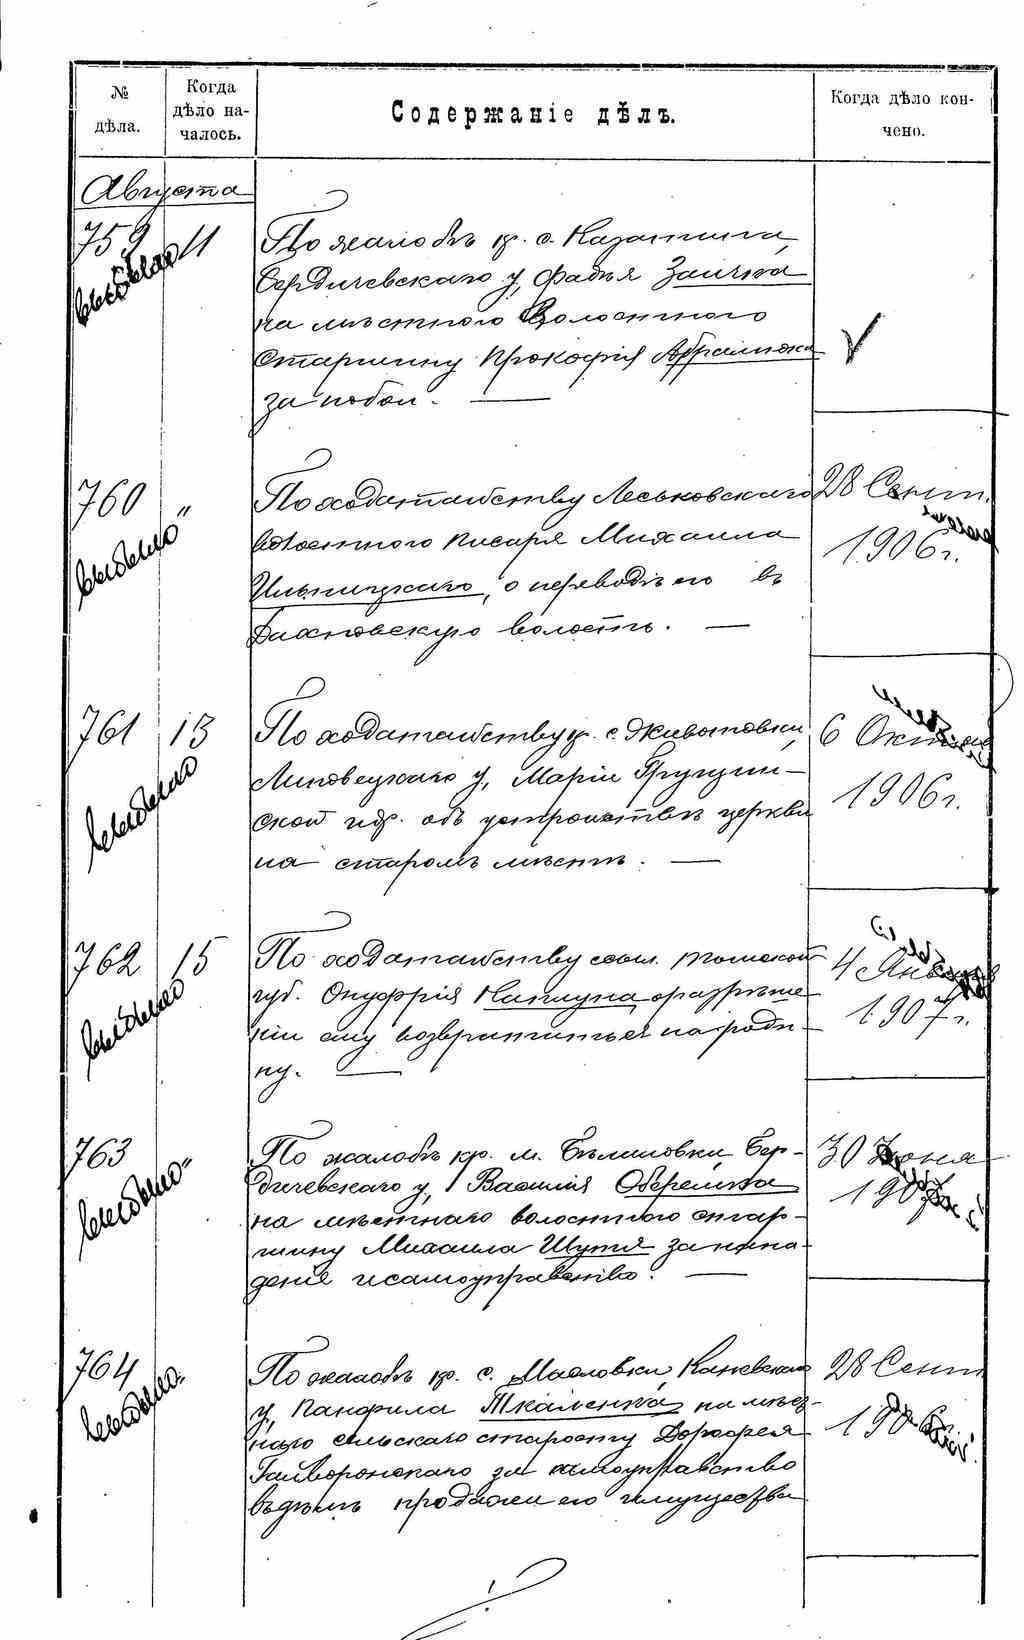 № дѣла.
Когда дѣло на-чалось.
Содержаніе дѣлъ.
Когда дѣло кон-чено.
Августа
759 11
По жалобѣ кр. с. Казатина,
Бердичевскаго у, Фадѣя Заички
на мѣстного Волостного
Старшину Прокофія Абрамюка
за побои. —
выбыло
760 "
По ходатайству Леськовскаго
волостного писаря Михаила
Ильницкаго, о переводѣ его въ
Дахновскую волость. —
28 Сент.
1906 г.
761 13
По ходатайству кр. с. Животовки,
Липовецкаго у, Маріи Грущин-
ской и др. объ устройствѣ церкви
на старомъ мѣстѣ. —
6 Октяб
1906 г.
762 15
По ходатайству ссыл. Томской
губ. Онуфрія Каплуна, о разрѣше
ніи ему возвратиться на роди-
ну. —
4 Января
1907 г.
763 "
По жалобѣ кр. м. Бѣлиловки Бер-
дичевскаго у, Василія Оберемка
на мѣстнаго волостного стар-
шину Михаила Шутя за напа-
деніе и самоуправство. —
30 Іюня
764 "
По жалобѣ кр. с. Масловки, Каневскаго
у, Панфила Ткаленка, на мѣст-
наго сельскаго старосту Дорофея
Гайворонскаго за самоуправство
продажи его имущества
28 Сент
1906 г.